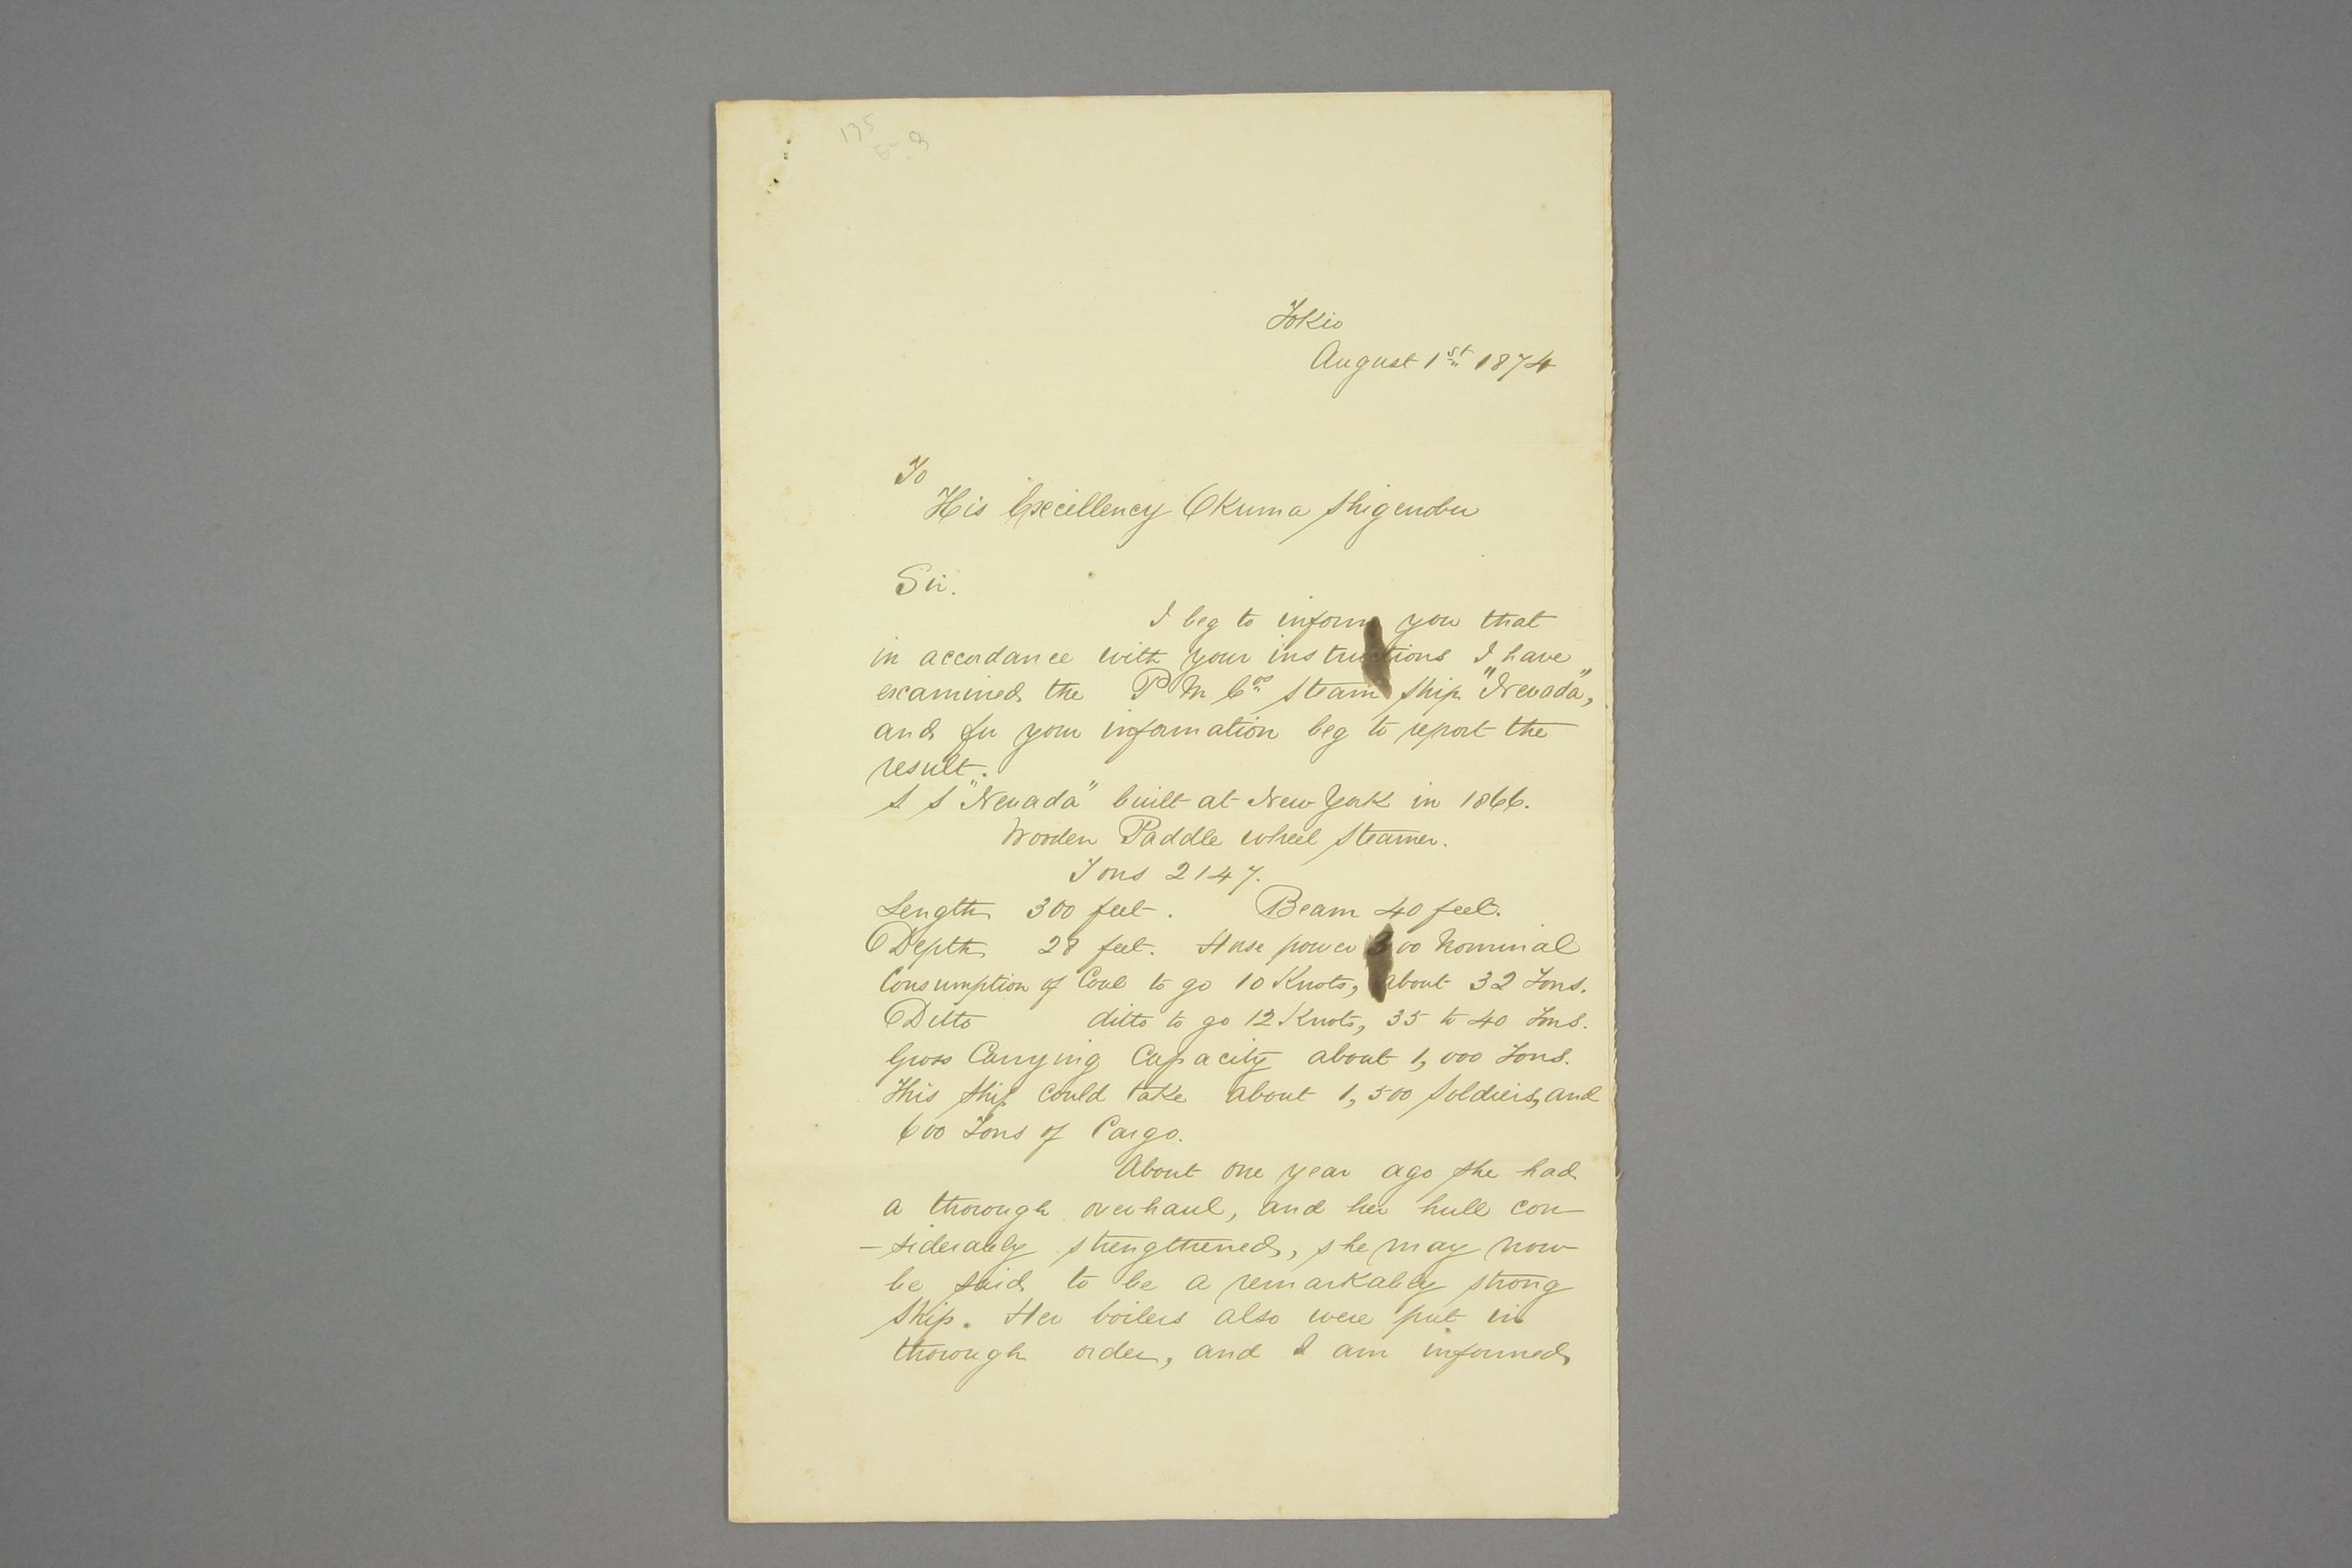 135
Tokio
August 1st 1874
To
His Excellency Okuma Shigenobu
Sir.
I beg to inform you that
in accordance with your instructions I have
examined the P M Cos Steam Ship "Nevada",
and for your information beg to report the
result.
S S "Nevada" built at New York in 1866.
Wooden Paddle wheel Steamer.
Tons 2147.
Length 300 feet. Beam 40 feet.
Depth 28 feet. Horse power 300 Nominal
Consumption of Coal to go 10 Knots, about 32 Tons.
Ditto ditto to go 12 Knots, 35 to 40 Tons.
Gross Carrying Capacity about 1,000 Tons.
This Ship could take about 1,500 Soldiers, and
600 Tons of Cargo.
About one year ago she had
a thorough overhaul, and her hull con
-siderably strengthened, she may now
be said to be a remarkably strong
Ship. Her boilers also were put in
thorough order, and I am informed